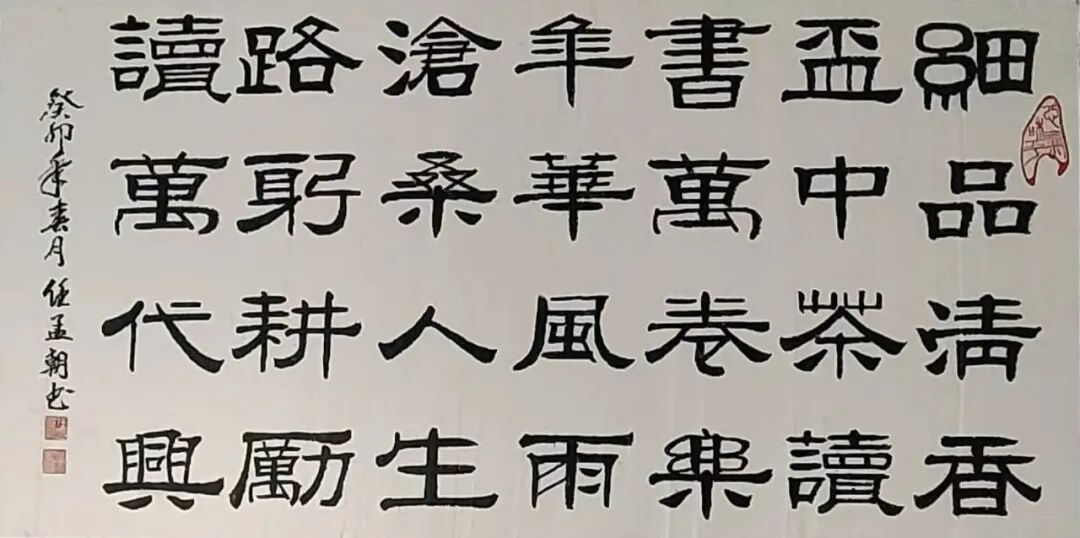 細品清香
盃中茶讀
書萬卷樂
年華風雨
滄桑人生
路躬耕勵
讀萬代興
癸卯年春月任孟朝书